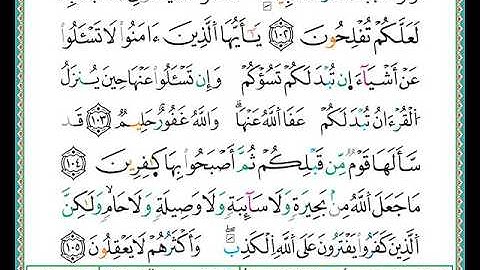 لَعَلَّكُمْ تُفْلِحُونَ ١٠٢ يَٰٓأَيُّهَا ٱلَّذِينَ ءَامَنُواْ لَا تَسْـَٔلُواْ
عَنْ أَشْيَآءَ إِن تُبْدَ لَكُمْ تَسُؤْكُمْ وَإِن تَسْـَٔلُواْ عَنْهَا حِينَ يُنزَلُ
ٱلْقُرْءَانُ تُبْدَ لَكُمْ عَفَا ٱللَّهُ عَنْهَا وَٱللَّهُ غَفُورٌ حَلِيمٌ ١٠٣ قَد
سَأَلَهَا قَوْمٌ مِّن قَبْلِكُمْ ثُمَّ أَصْبَحُواْ بِهَا كَٰفِرِينَ ١٠٤
مَا جَعَلَ ٱللَّهُ مِنۢ بَحِيرَةٍ وَلَا سَآئِبَةٍ وَلَا وَصِيلَةٍ وَلَا حَامٍ وَلَٰكِنَّ
ٱلَّذِينَ كَفَرُواْ يَفْتَرُونَ عَلَى ٱللَّهِ ٱلْكَذِبَ وَأَكْثَرُهُمْ لَا يَعْقِلُونَ ١٠٥